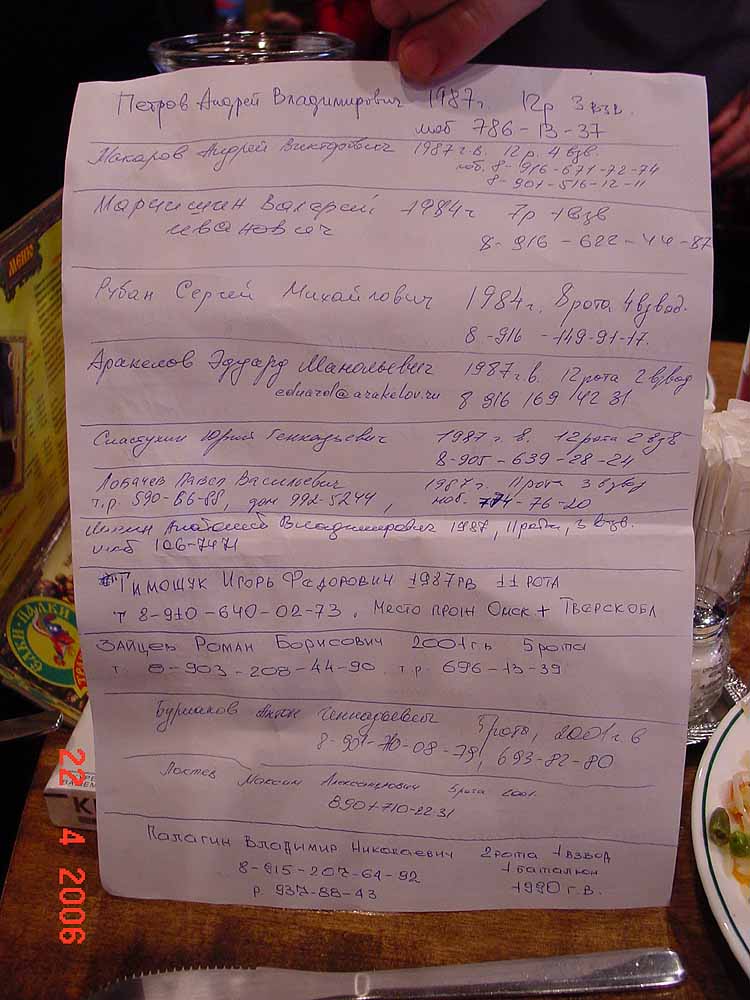 Петров Андрей Владимирович 1987г. 12р 3 взв.
моб 786-13-37
Макаров Андрей Викторович 1987 г.в. 12р. 4 взв.
моб. 8-916-671-72-74
8-901-516-12-11
Валерий 1984г 7р 1 взв
Иванович
8-916-622-44-87
Рубан Сергей Михайлович 1984г. 8 рота 4 взвод.
8-916-149-91-17.
Аракелов Эдуард Манольевич 1987г.в. 12 рота 2 взвод
eduard@arakelov.ru 8 916 169 42 31
Сластухин Юрий Геннадьевич 1987 г. в. 12 рота 2 взв
8-905-639-28-24
Лобачев Павел Васильевич 1987г. 11 рота 3 взвод
т.р. 590-66-88, дом 992-5244, моб. 774-76-20
Анатолий Владимирович 1987, 11 рота, 3 взв.
моб 106-7471
Тимощук Игорь Федорович 1987 гв 11 рота
т 8-910-640-02-73, Место прож Омск + Тверск обл
Зайцев Роман Борисович 2001г.в 5 рота
т. 8-903-208-44-90 т.р. 696-13-39
Бурмаков Антон Геннадьевич 5 рота, 2001 г. в
8-901-710-08-79, 693-82-80
Лоптев Максим Александрович 5 рота 2001.
8901-710-22-31
Палагин Владимир Николаевич 2 рота 1 взвод
8-915-207-64-92 1 батальон
р. 937-88-43 1990 г.в.
Меню
ЕЛКИ-ПАЛКИ
22 4 2006